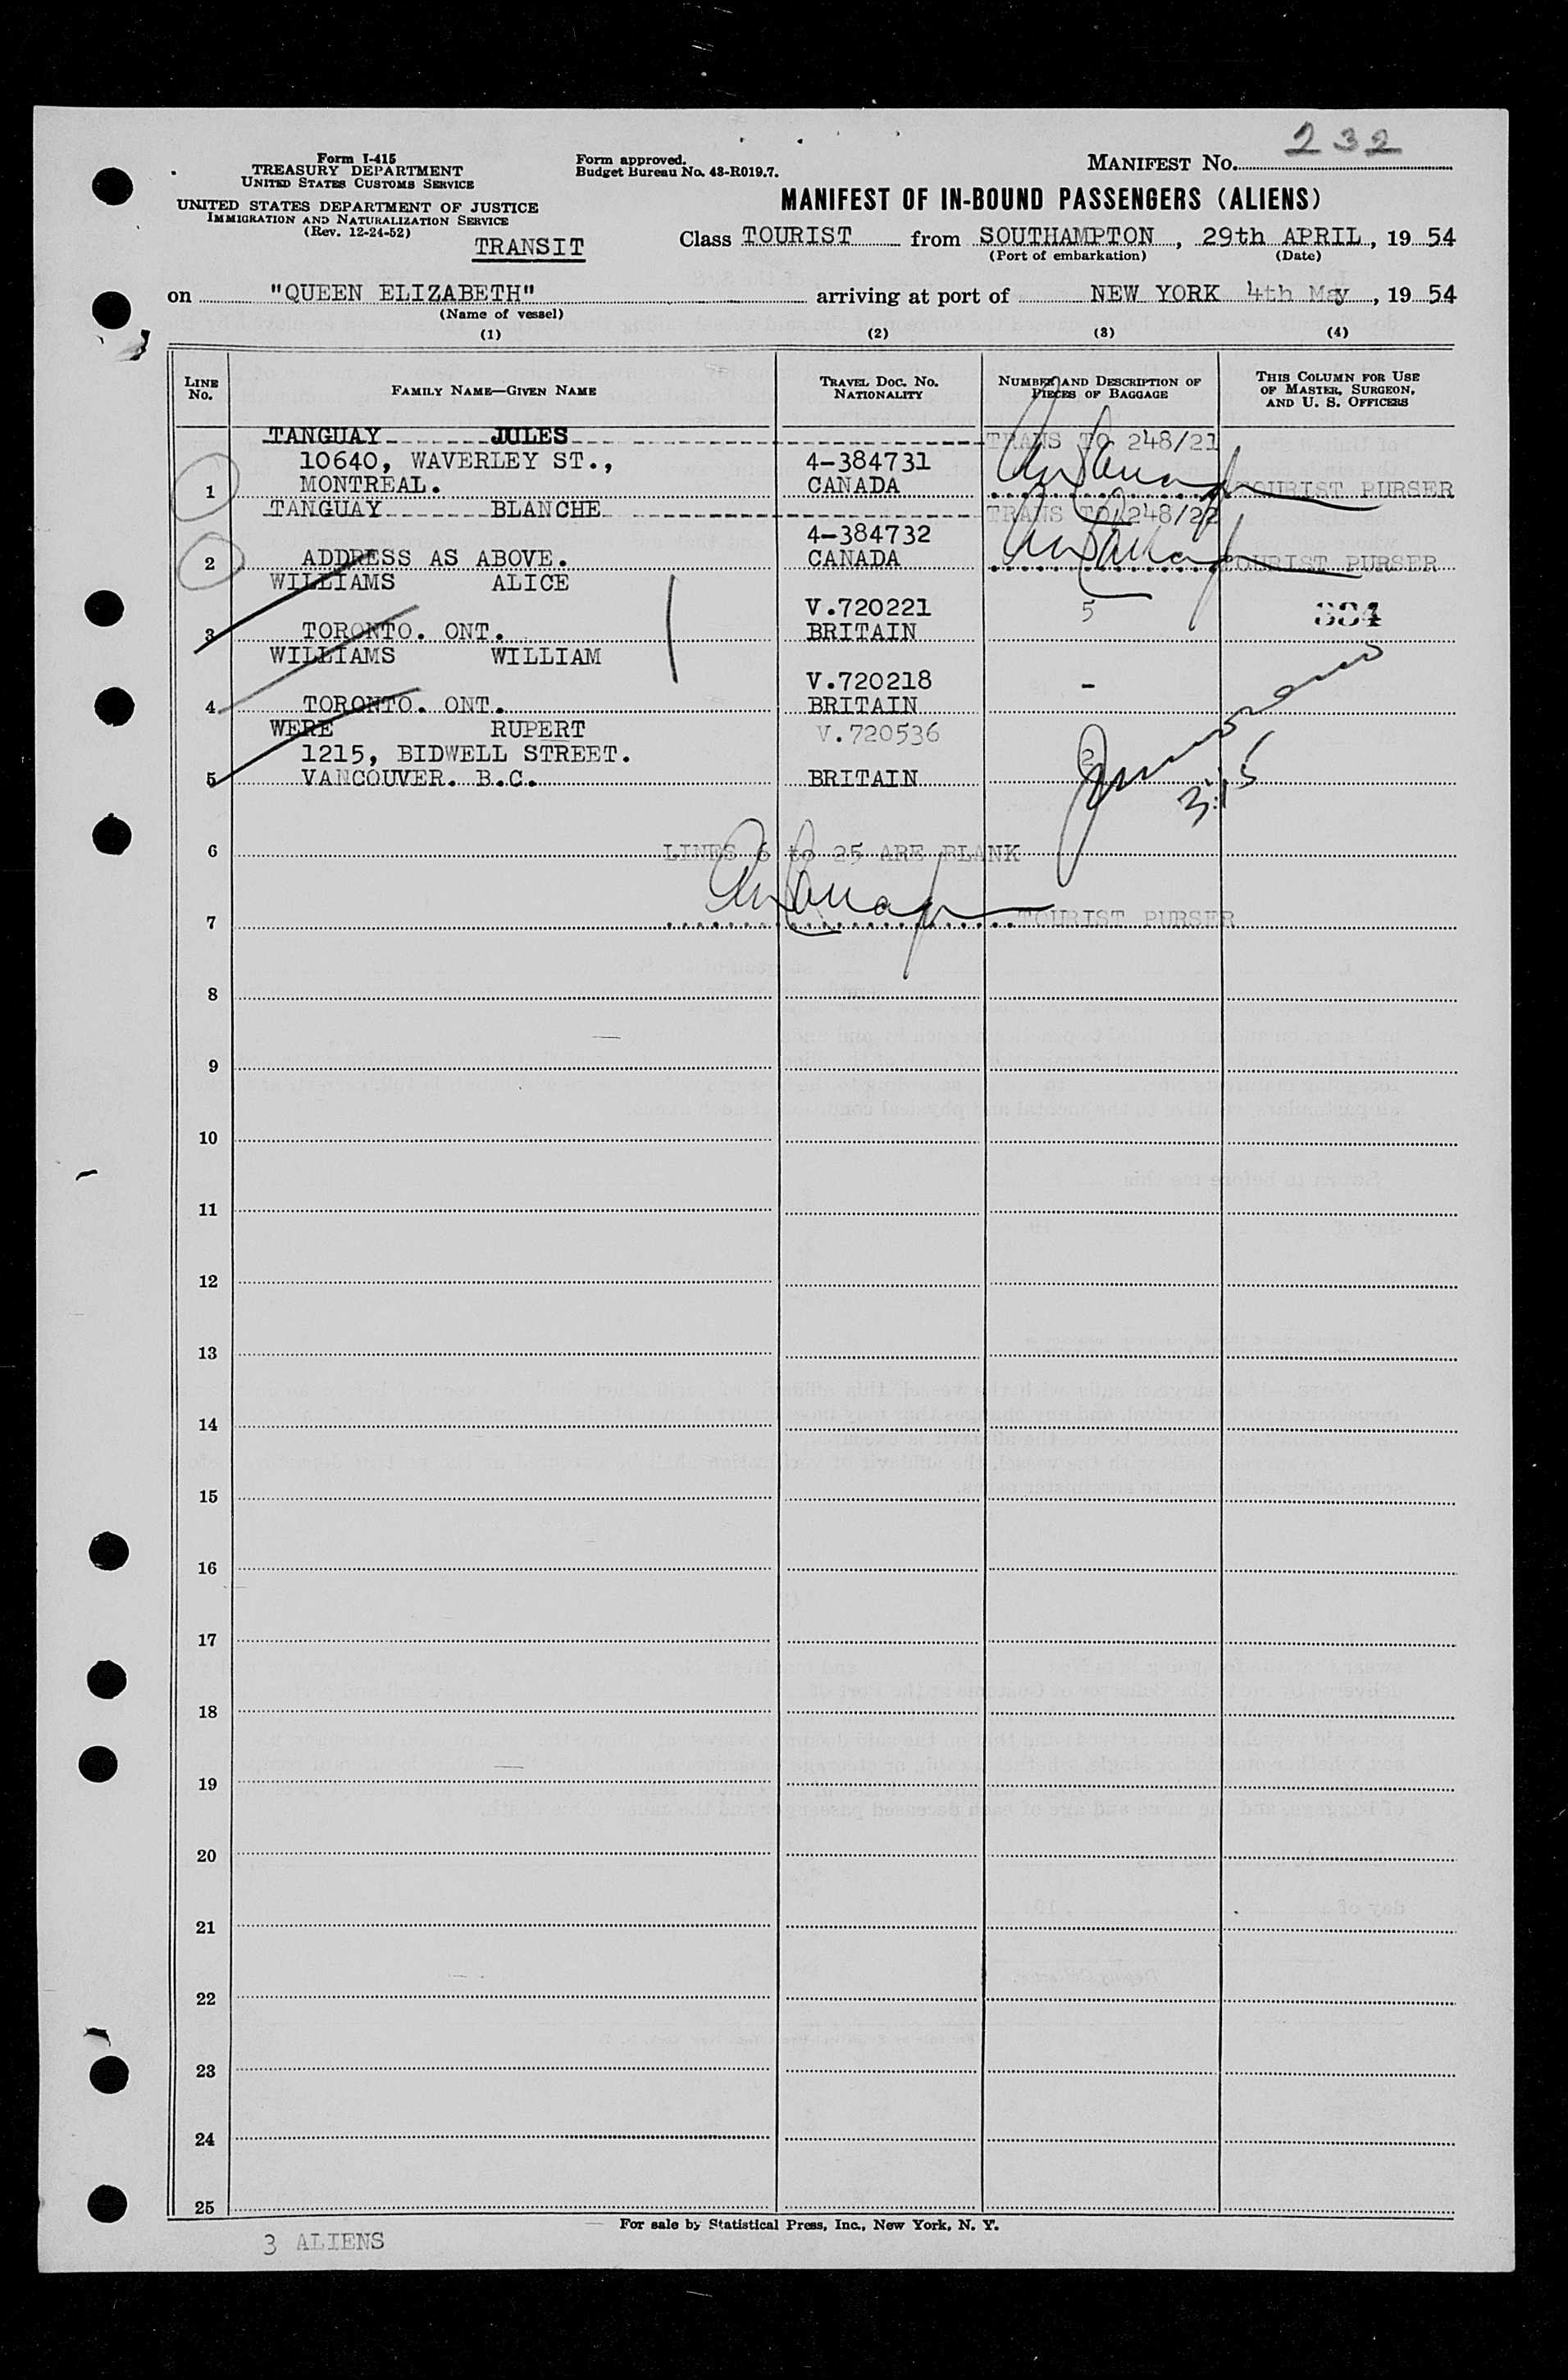 232
Form I-415
TREASURY DEPARTMENT
UNITED STATES CUSTOMS SERVICE
UNITED STATES DEPARTMENT OF JUSTICE
IMMIGRATION AND NATURALIZATION SERVICE
(Rev. 12-24-52)
TRANSIT
Form approved.
Budget Bureau No. 43-R019.7.
MANIFEST NO.
MANIFEST OF IN-BOUND PASSENGERS (ALIENS)
Class TOURIST from SOUTHAMPTON, 29th APRIL, 19 54
(Port of embarkation) (Date)
on "QUEEN ELIZABETH" arriving at port of NEW YORK 4th May, 19 54
(Name of vessel)
(1) (2) (3) (4)
LINE NO. FAMILY NAME—GIVEN NAME TRAVEL DOC. NO. NATIONALITY NUMBER AND DESCRIPTION OF PIECES OF BAGGAGE THIS COLUMN FOR USE OF MASTER, SURGEON, AND U. S. OFFICERS
TANGUAY JULES TRANS TO 248/21
10640, WAVERLEY ST., 4-384731
1 MONTREAL. CANADA TOURIST PURSER
TANGUAY BLANCHE TRANS TO 248/22
4-384732
2 ADDRESS AS ABOVE. CANADA TOURIST PURSER
WILLIAMS ALICE
V.720221 5
3 TORONTO. ONT. BRITAIN
WILLIAMS WILLIAM
V.720218 -
4 TORONTO. ONT. BRITAIN
WERE RUPERT V.720536
1215, BIDWELL STREET. 2
5 VANCOUVER. B.C. BRITAIN
6 LINES 6 to 25 ARE BLANK
7 TOURIST PURSER
8
9
10
11
12
13
14
15
16
17
18
19
20
21
22
23
24
25
For sale by Statistical Press, Inc., New York, N. Y.
3 ALIENS